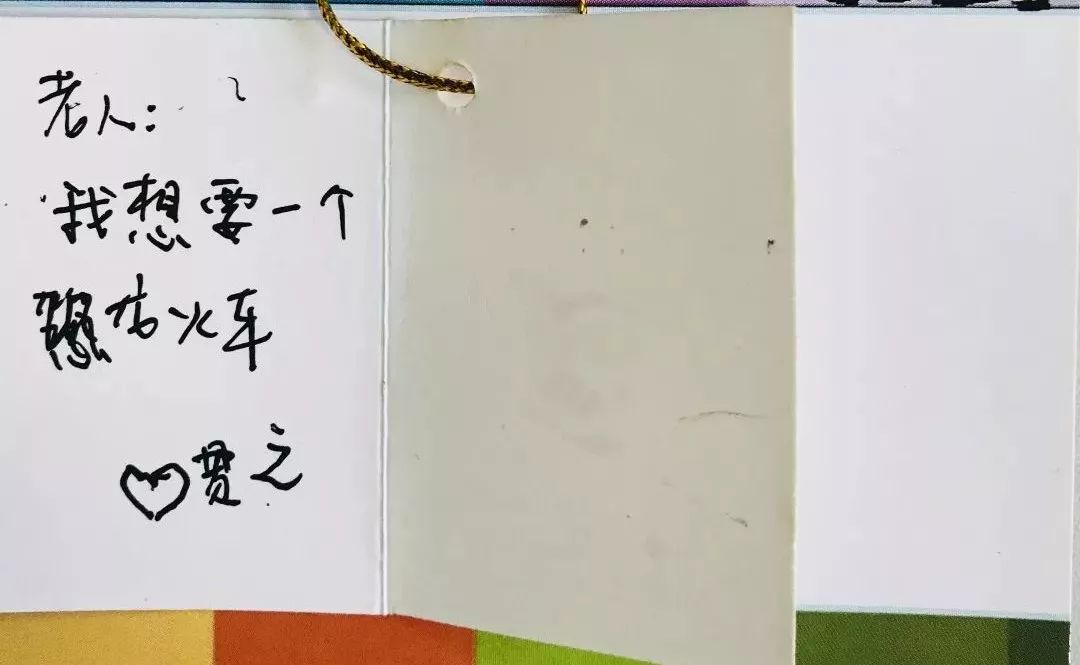 老人:
我想要一个
火车
贯之